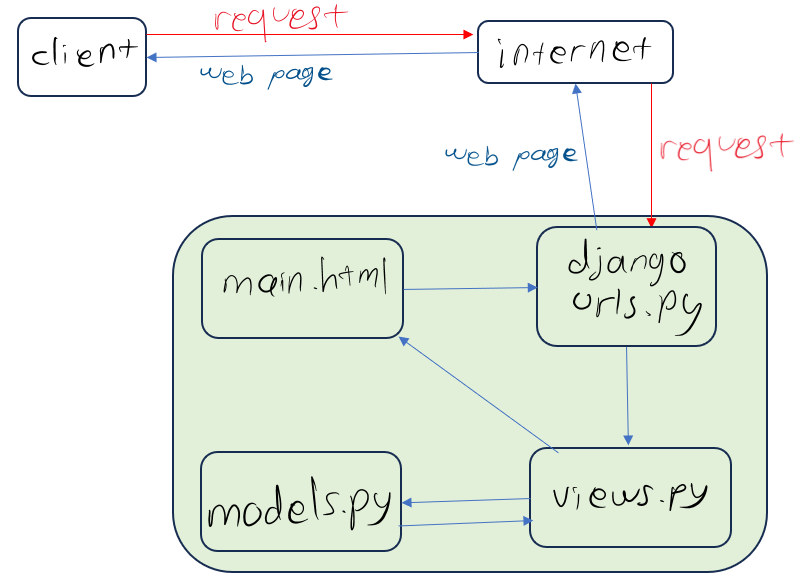 request
client
internet
web page
web page
request
main.html
django
urls.py
models.py
views.py